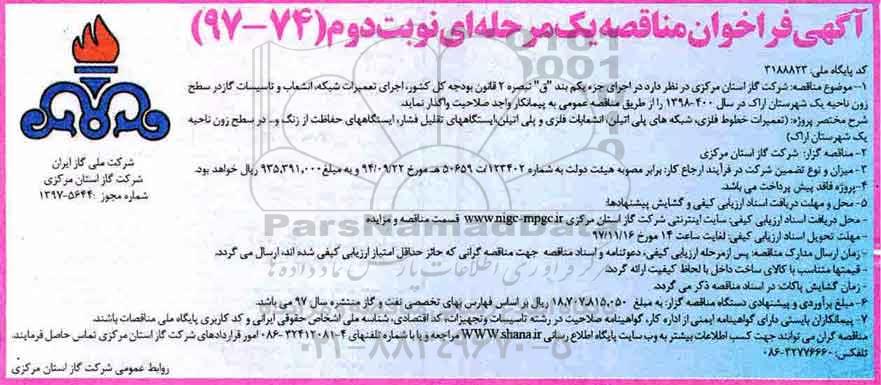 آگهی فراخوان مناقصه یک مرحله‌ای نوبت دوم (۷۴-۹۷)
کد پایگاه ملی: ۳۱۸۸۸۲۳
۱- موضوع مناقصه: شرکت گاز استان مرکزی در نظر دارد در اجرای جزء یکم بند "ق" تبصره ۲ قانون بودجه کل کشور، اجرای تعمیرات شبکه، انشعاب و تاسیسات گاز در سطح
زون ناحیه یک شهرستان اراک در سال ۴۰۰-۱۳۹۸ را از طریق مناقصه عمومی به پیمانکار واجد صلاحیت واگذار نماید.
شرح مختصر پروژه: (تعمیرات خطوط فلزی، شبکه های پلی اتیلن، انشعابات فلزی و پلی اتیلن، ایستگاههای تقلیل فشار، ایستگاههای حفاظت از زنگ و... در سطح زون ناحیه
یک شهرستان اراک)
۲- مناقصه گزار: شرکت گاز استان مرکزی
۳- میزان و نوع تضمین شرکت در فرآیند ارجاع کار: برابر مصوبه هیئت دولت به شماره ۱۲۳۴۰۲/ت ۵۰۶۵۹ هـ مورخ ۹۴/۰۹/۲۲ و به مبلغ ۹۳۵,۳۹۱,۰۰۰ ریال خواهد بود.
۴- پروژه فاقد پیش پرداخت می باشد.
۵- محل و مهلت دریافت اسناد ارزیابی کیفی و گشایش پیشنهادها:
- محل دریافت اسناد ارزیابی کیفی: سایت اینترنتی شرکت گاز استان مرکزی www.nigc-mpgc.ir قسمت مناقصه و مزایده
- مهلت تحویل اسناد ارزیابی کیفی: لغایت ساعت ۱۴ مورخ ۹۷/۱۱/۱۶
- زمان ارسال مدارک مناقصه: پس از مرحله ارزیابی کیفی، دعوتنامه و اسناد مناقصه جهت مناقصه گرانی که حائز حداقل امتیاز ارزیابی کیفی شده اند، ارسال می گردد.
- قیمتها متناسب با کالای ساخت داخل با لحاظ کیفیت ارائه گردد.
- زمان گشایش پاکات در اسناد مناقصه ذکر می گردد.
۶- مبلغ برآوردی و پیشنهادی دستگاه مناقصه گزار: به مبلغ ۱۸,۷۰۷,۸۱۵,۰۵۰ ریال بر اساس فهارس بهای تخصصی نفت و گاز منتشره سال ۹۷ می باشد.
۷- پیمانکاران بایستی دارای گواهینامه ایمنی از اداره کار، گواهینامه صلاحیت در رشته تاسیسات و تجهیزات، کد اقتصادی، شناسه ملی اشخاص حقوقی ایرانی و کد کاربری پایگاه ملی مناقصات باشند.
مناقصه گران می توانند جهت کسب اطلاعات بیشتر به وب سایت پایگاه اطلاع رسانی WWW.shana.ir مراجعه و یا با شماره تلفنهای ۴-۳۲۴۱۲۰۸۱-۰۸۶ امور قراردادهای شرکت گاز استان مرکزی تماس حاصل فرمایند.
تلفکس: ۳۲۷۷۶۶۶۰-۰۸۶
روابط عمومی شرکت گاز استان مرکزی
شرکت ملی گاز ایران
شرکت گاز استان مرکزی
شماره مجوز: ۵۶۴۴-۱۳۹۷
ParsNamadData
۰۲۱-۸۸۳۴۹۶۷۰-۵